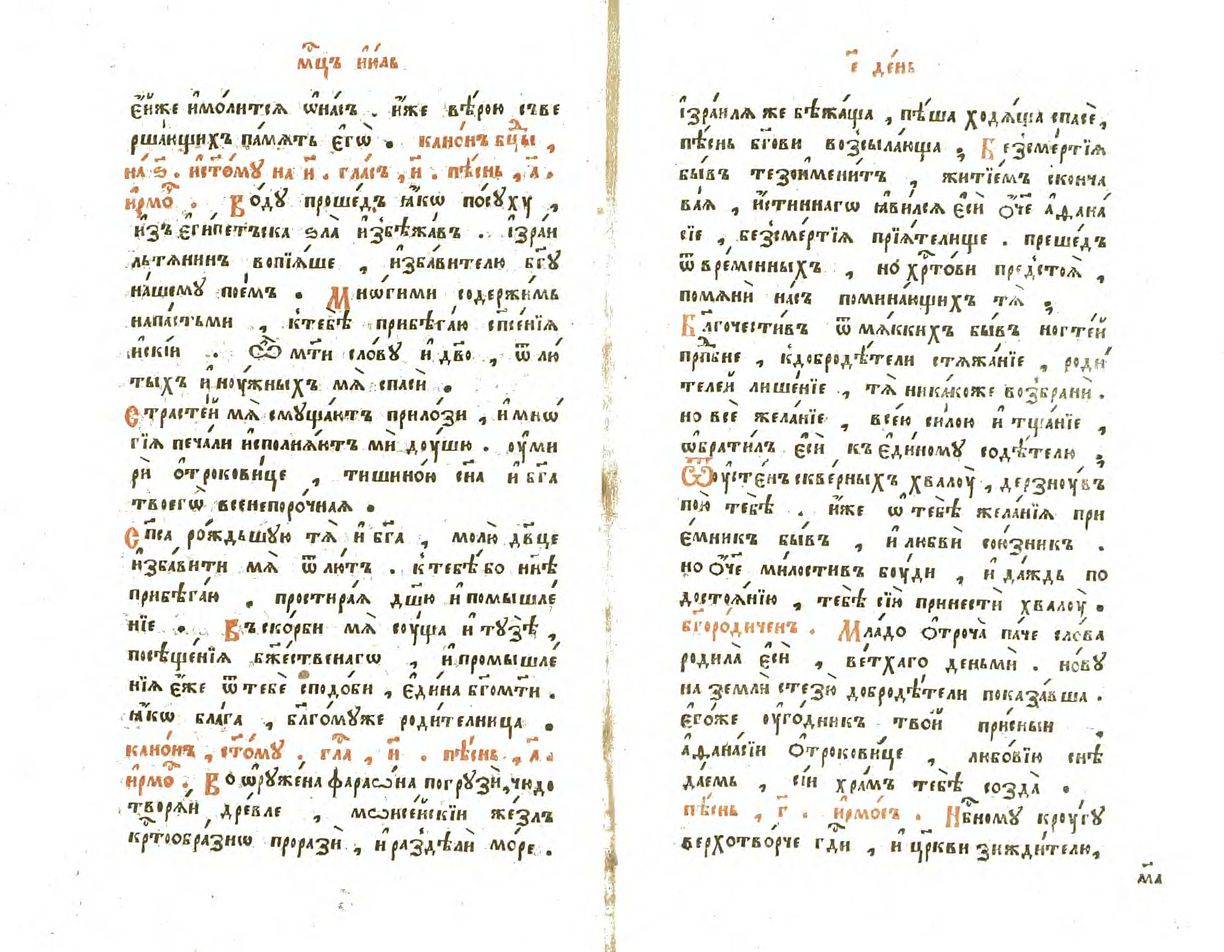 мⷭ҇цъ і҆ꙋ́лїѧ
є҆́йже и҆мо́литсѧ ѡ҆на́съ . и҆́же вѣ́рою съве
рша́ющихъ па́мѧть є҆гѡ̀ . кано́нъ бцⷣы ,
на̀ ѕ҃ . и҆ст҃о́мꙋ на и҃ . гла́съ , и҃ . пѣ́снь , а҃ .
і҆рмоⷭ҇ . Во́дꙋ проше́дъ ꙗ҆́кѡ по́сꙋхꙋ ,
и҆зъ є҆гѵ́петъска ѕла̀ и҆збѣжа́въ . і҆зраи
льтѧ́нинъ вопїѧ́ше , и҆зба́вителю бг҃ꙋ
на́шемꙋ пои́мъ . Мнѡ́гими содержи́мь
напа́стьми , ктебѣ̀ прибѣга́ю сп҃се́нїѧ
и҆скі́й . Ѽ мт҃и сло́вꙋ и҆ дв҃о , ѿ лю́
тыхъ и҆ноу́жныхъ мѧ̀ спасѝ .
Страсте́й мѧ̀ смꙋща́ютъ прило́зи , и҆ мнѡ́
гїѧ печа́ли и҆сполнѧ́ютъ мѝ доу́шю . оу҆ми
рѝ ѻ҆трокови́це , тишино́ю сн҃а и҆ бг҃а
твоегѡ̀ всенепоро́чнаѧ .
Сп҃са ро́ждьшꙋю тѧ̀ и҆ бг҃а , молю̀ дв҃це
и҆зба́вити мѧ̀ ѿ лю́тъ . к тебѣ́ бо нн҃ѣ
прибѣга́ю , простира́ѧ дш҃ю и҆ помышле́
нїе . Въ ско́рби мѧ̀ соу́ща и҆ тꙋзѣ̀ ,
посѣще́нїѧ бж҃е́ственагѡ , и҆ промышле́
нїѧ є҆́же ѿ тебѐ сподо́би , є҆ди́на бг҃омт҃и .
ꙗ҆́кѡ блага̀ , бл҃гомꙋже роди́телница .
кано́нъ , ст҃о́мꙋ . глаⷭ҇ , и҃ . пѣ́снь , а҃ .
і҆рмоⷭ҇ . Воѡ҆рꙋже́на фараѡ́на погрꙋзѝ , чю́до
творѧ́й дре́вле , мѡѷсе́йскїй же́злъ
крⷭ҇тоѡбра́знѡ поразѝ , и҆ раздѣлѝ мо́ре .
є҃ де́нь
і҆зра́илѧ же бѣжа́ща , пѣ́ша ходѧ́ща спасѐ ,
пѣ́снь бг҃ови возсыла́юща ; Безсме́ртїѧ
бы́въ тезоимени́тъ , житїе́мъ сконча
ва́ѧ , и҆́стиннагѡ ꙗ҆ви́лсѧ є҆сѝ ѻ҆́ч҃е а҆ѳана́
сїе , безсме́ртїѧ прїѧ́телище . преше́дъ
ѿ вре́менныхъ , но̀ хрⷭ҇то́ви предстоѧ̀ ,
помѧнѝ на́съ помина́ющихъ тѧ̀ ;
Благочести́въ ѿ мѧ́кхихъ бы́въ ногте́й
прпⷣбне , к добродѣ́тели стѧжа́нїе , роди́
телей лише́нїе , тѧ̀ ника́коже возбранѝ .
но всѐ жела́нїе , все́ю си́лою и҆ тща́нїе ,
ѡ҆брати́лъ є҆сѝ къ є҆ди́номꙋ содѣ́телю ;
Ѿ оу҆сте́нъ скве́рныхъ хвалоу̀ , дерзноу́въ
пою̀ тебѣ̀ . и҆́же ѡ҆ тебѣ̀ жела́нїѧ прї
е́мникъ бы́въ , и҆ любвѝ сою́зникъ .
но ѻ҆́ч҃е ми́лостивъ боу́ди , и҆ да́ждь по
достоѧ́нїю , тебѣ̀ сїю̀ принестѝ хвалоу̀ .
бг҃оро́диченъ . Мла́до ѻ҆троча̀ па́че сло́ва
родила̀ є҆сѝ , ве́тхаго деньмѝ . но́вꙋ
на землѝ стезю̀ добродѣ́тели показа́вша .
є҆го́же оу҆го́дникъ тво́й при́сный ,
а҆ѳана́сїй ѻ҆трокови́це , любо́вїю снѣ
да́емь , сі́й хра́мъ тебѣ̀ созда̀ .
пѣ́снь , г҃ . і҆рмо́съ . Нб҃номꙋ кроу́гꙋ
верхотво́рче гдⷭ҇и , и҆ цр҃кви зижди́телю ,
м҃а